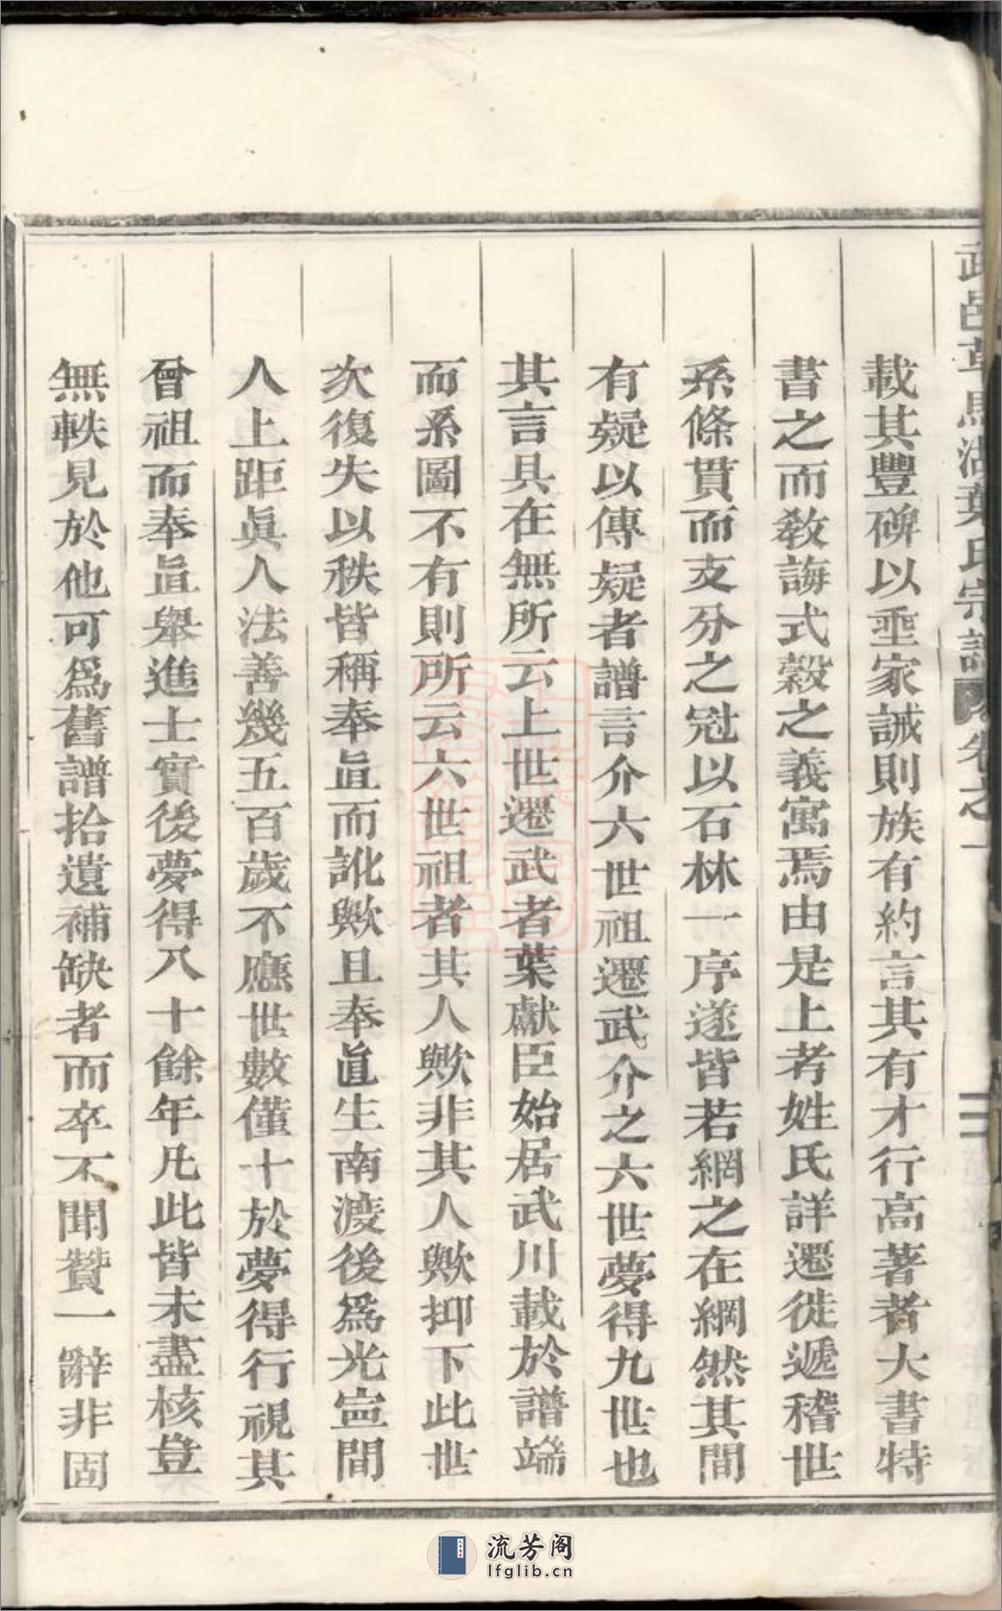 武邑草馬湖葉氏宗譜 卷之一 二
載其豐碑以垂家誡則族有約言其有才行高著者大書特
書之而教誨式穀之義寓焉由是上考姓氏詳遷徙遞稽世
系條貫而支分之冠以石林一序遂皆若網之在綱然其間
有疑以傳疑者譜言介六世祖遷武介之六世夢得九世也
其言具在無所云上世遷武者葉獻臣始居武川載於譜端
而系圖不有則所云六世祖者其人歟非其人歟抑下此世
次復失以秩皆稱奉眞而訛歟且奉眞生南渡後為光寍間
人上距眞人法善幾五百歲不應世數僅十於夢得行視其
曾祖而奉眞舉進士實後夢得八十餘年凡此皆未盡核登
無軼見於他可爲舊譜拾遺補缺者而卒不聞贊一辭非固
流芳阁
lfglib.cn